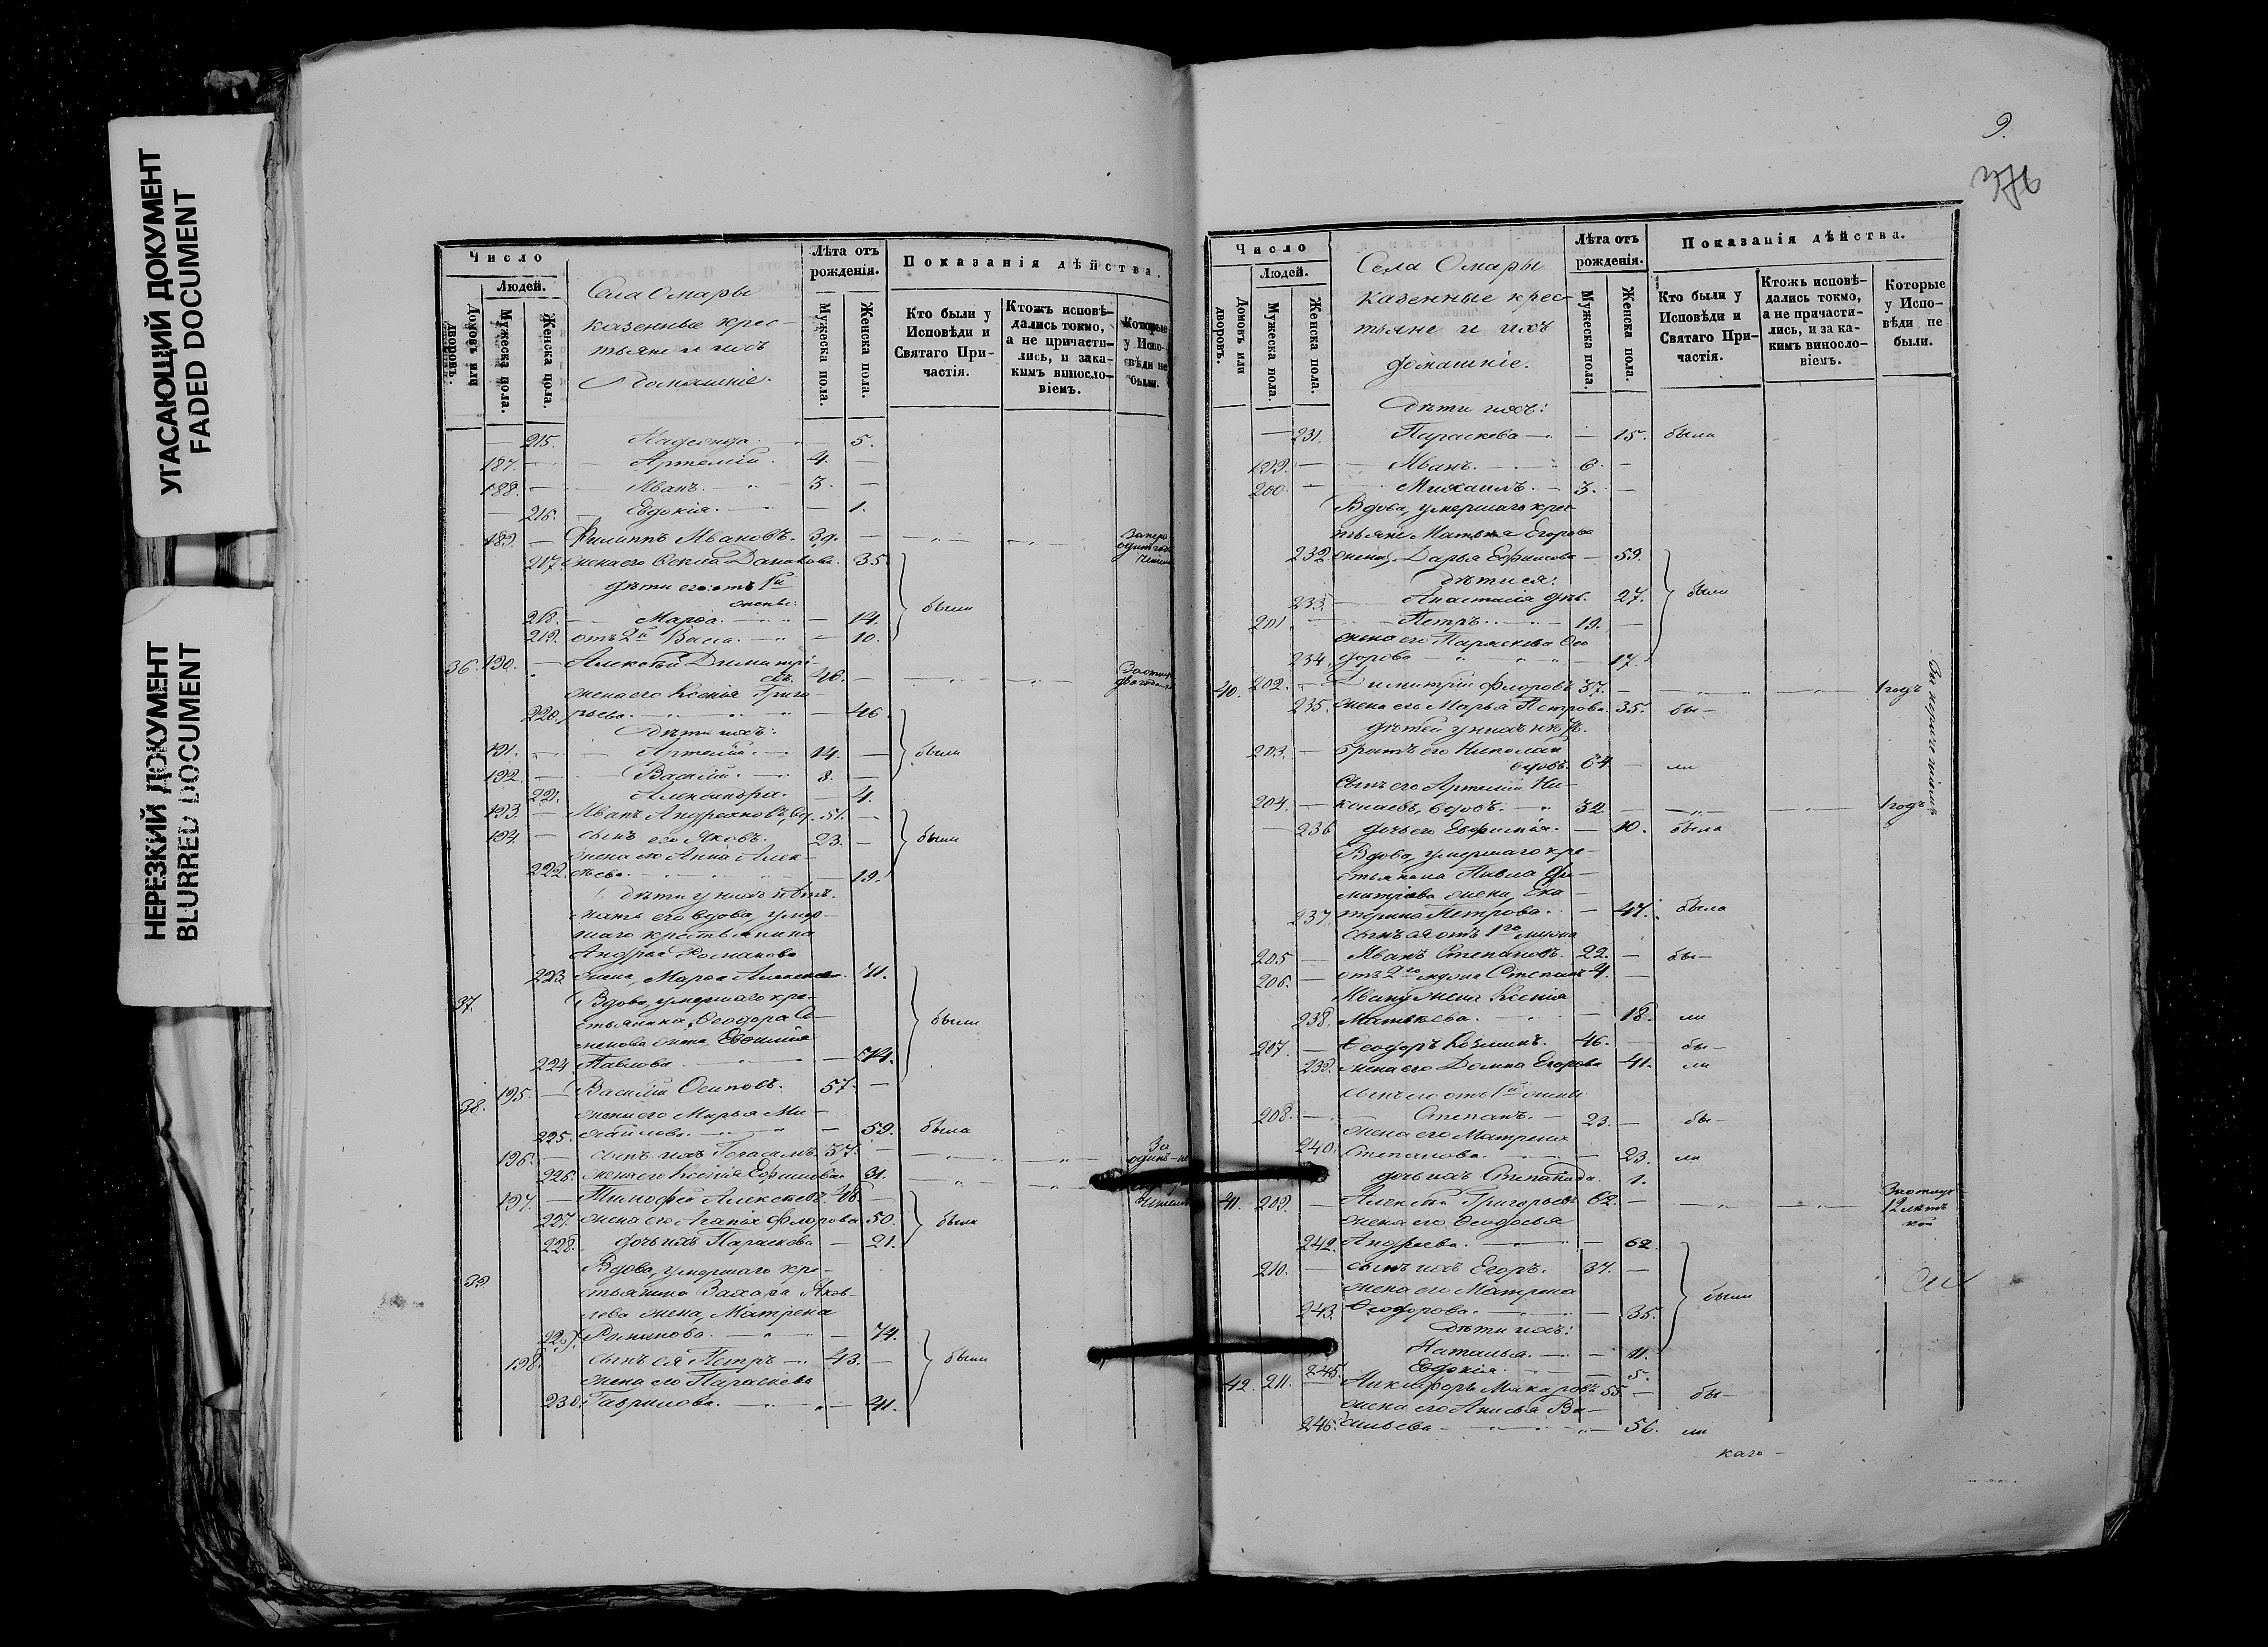 УГАСАЮЩИЙ ДОКУМЕНТ
FADED DOCUMENT
НЕРЕЗКИЙ ДОКУМЕНТ
BLURRED DOCUMENT
Число
Людей.
Домовъ или дворовъ.
Мужеска пола.
Женска пола.
Села Омары
казенные крес-
тьяне и ихъ
домашніе.
Лѣта отъ рожденія.
Мужеска пола.
Женска пола.
Показанія дѣйства.
Кто были у Исповѣди и Святаго При-частія.
Ктожъ исповѣ-дались токмо, а не причасти-лись, и за ка-кимъ винословіемъ.
Которые у Испо-вѣди не были.
215. Надежда. — 5.
187. — Артемій. 4. —
188. — Иванъ. 3. —
— 216. Евдокія. — 1.
189. — Филиппъ Ивановъ. 39. —
217. жена его Ѳекла 35.
дѣти его: отъ 1й
жены:
218. Марѳа. — 14. были
219. отъ 2й Васса. — 10.
36. 190. — Алексѣй Димитрі-
евъ. 46. —
жена его Ксенія Григо-
220. рьева. — 46.
Дѣти ихъ:
191. — Артемій. 14. — были
192. — Василій. 8. —
221. Александра. — 4.
193. — Иванъ Андреяновъ, 51. —
194. — сынъ его Яковъ. 23. — были
жена его Анна Алек-
222. сѣева. — 19.
дѣти у нихъ нѣтъ.
мать его вдова, умер-
шаго крестьянина
Андрея Романова
223. жена, Марѳа 71.
37. Вдова, умершаго кре-
стьянина Ѳеодора Се- были
менова жена, Евфимія
224. Павлова — 74.
38. 195. — Василій Осиповъ. 57. —
жена его Марья Ми-
225. хайлова. — 59. была
196. — сынъ ихъ Герасимъ. 37. — За одинъ
226. жена его Ксенія Ефимова 31.
197. — Тимофей Алексѣевъ. 48. —
227. жена его Агапія Флорова 50. были
228. дочь ихъ Параскева — 21.
39. Вдова, умершаго кре-
стьянина Захара Яков-
лева жена, Матрена
229. Романова. — 74.
198. — сынъ ея Петръ — 43. — были
жена его Параскева
230. Гаврилова. — 41.
9.
Число
Людей.
Домовъ или дворовъ.
Мужеска пола.
Женска пола.
Села Омары
казенные крес-
тьяне и ихъ
домашніе.
Лѣта отъ рожденія.
Мужеска пола.
Женска пола.
Показанія дѣйства.
Кто были у Исповѣди и Святаго При-частія.
Ктожъ исповѣ-дались токмо, а не причасти-лись, и за ка-кимъ винословіемъ.
Которые у Испо-вѣди не были.
Дѣти ихъ:
— 231. Параскева — 15. была
199. — Иванъ. 6. —
200. — Михаилъ. 3. —
Вдова, умершаго крес-
тьянина Матвѣя Егорова
232. жена, Дарья Ефимова — 59.
Дѣти ея:
233. Анастасія дѣв. 27. были
201. — Петръ. 19. —
жена его Параскева Ѳео-
234. дорова — 17.
40. 202. — Димитрій Флоровъ 37. — 1 годъ
235. жена его Марья Петрова. 35. бы-
дѣтей у нихъ нѣтъ.
203. — братъ его Николай
вдовъ. 64 — ли
Сынъ его Артемій Ни-
204. — колаевъ, вдовъ. 32. — 1 годъ
— 236 дочь его Евфимія. — 10. была
Вдова, умершаго кре-
стьянина Павла Ди-
митріева жена, Ека-
237. терина Петрова. — 47. была
Сынъ ея отъ 1го мужа
205 — Иванъ Степановъ. 22. — бы-
206. — отъ 2го мужа Степанъ 4. —
Ивану жена Ксенія
238. Матвѣева. — 18. ли
207. — Ѳеодоръ Козминъ. 46. — бы-
239. жена его Домна Егорова 41. ли
сынъ его отъ 1й жены
208. — Степанъ. — 23. — бы-
жена его Матрена
240. Степанова. — 23. ли
дочь ихъ Степанида. 1.
41. 209. — Алексѣй Григорьевъ 62. — 12 лѣтъ
жена его Ѳеодосья
242. Андреева. — 62.
210. — сынъ ихъ Егоръ. 37. —
жена его Матрена были
243. Ѳеодорова. — 35.
Дѣти ихъ:
Наталья. — 11.
245. Евдокія. — 5.
42. 211. — Никифоръ Макаровъ 55. — бы-
жена его Анисья Ва-
246. сильева — 56. ли
каго-